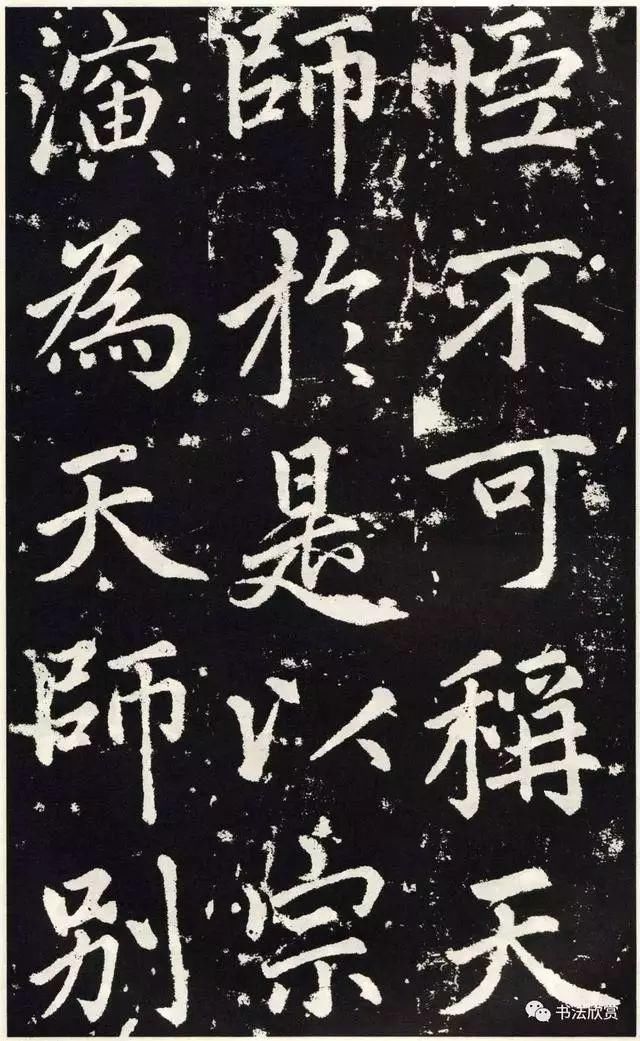 不可稱天
師於是以宗
演為天師別
书法欣赏